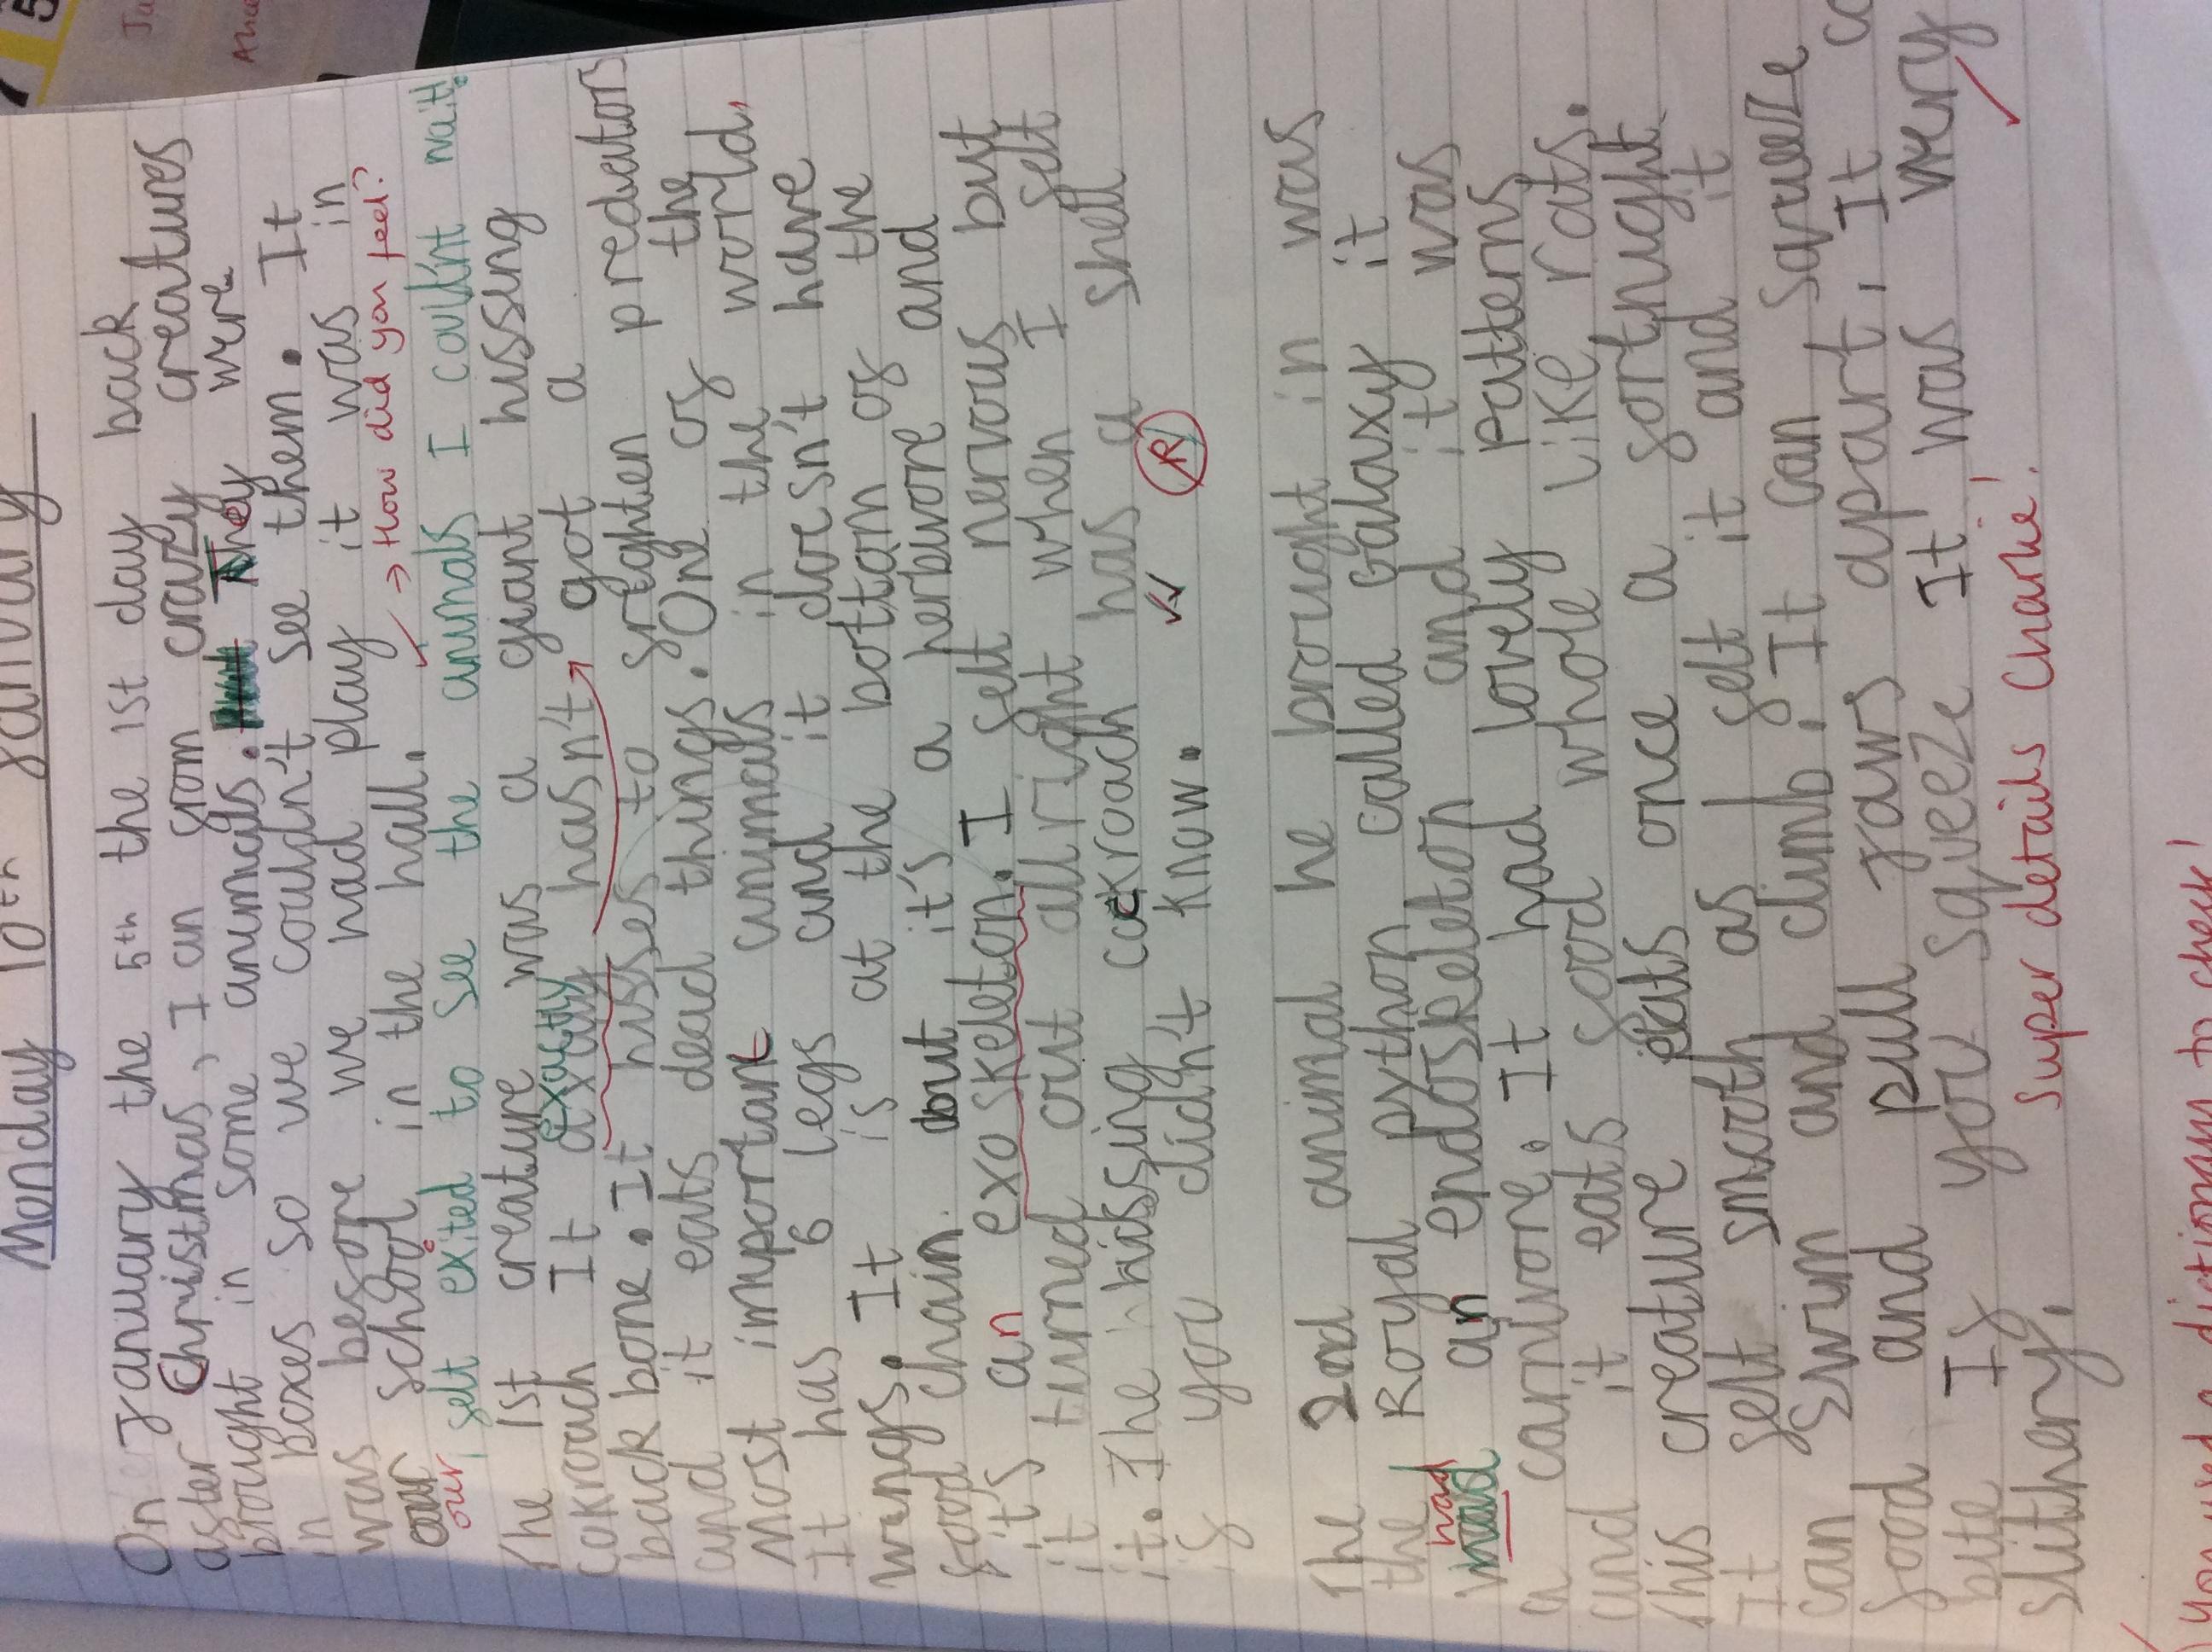 Monday 10th January
On January the 5th the 1st day back
after Christmas, Ian from crazy creatures
brought in some animals. They were
in boxes so we couldn't see them. It
was before we had play it was in
our school in the hall. → How did you feel?
our I felt exited to see the animals I could'nt wait!
The 1st creature was a giant hissing
cokroach It exactly hasn't got a
back bone. It hisses to frighten predeators
and it eats dead things. One of the
most important animals in the world.
It has 6 legs and it doesn't have
wings. It is at the bottom of the
food chain but it's a herbivore and
it's an exoskeleton. I felt nervous but
it turned out allright when I felt
it. The hissing cockroach has a shell
if you didn't know. R
The 2nd animal he brought in was
the Royal python called Galaxy it
had an endoskeleton and it was
a carnivore. It had lovely patterns
and it eats food whole like rats.
This creature eats once a fortnight.
It felt smooth as I felt it and it
can swim and climb. It can squeeze
food and pull jaws apart. It
bite If you squeeze It was very
slithery.
Super details Charlie!
you used a dictionary to check!